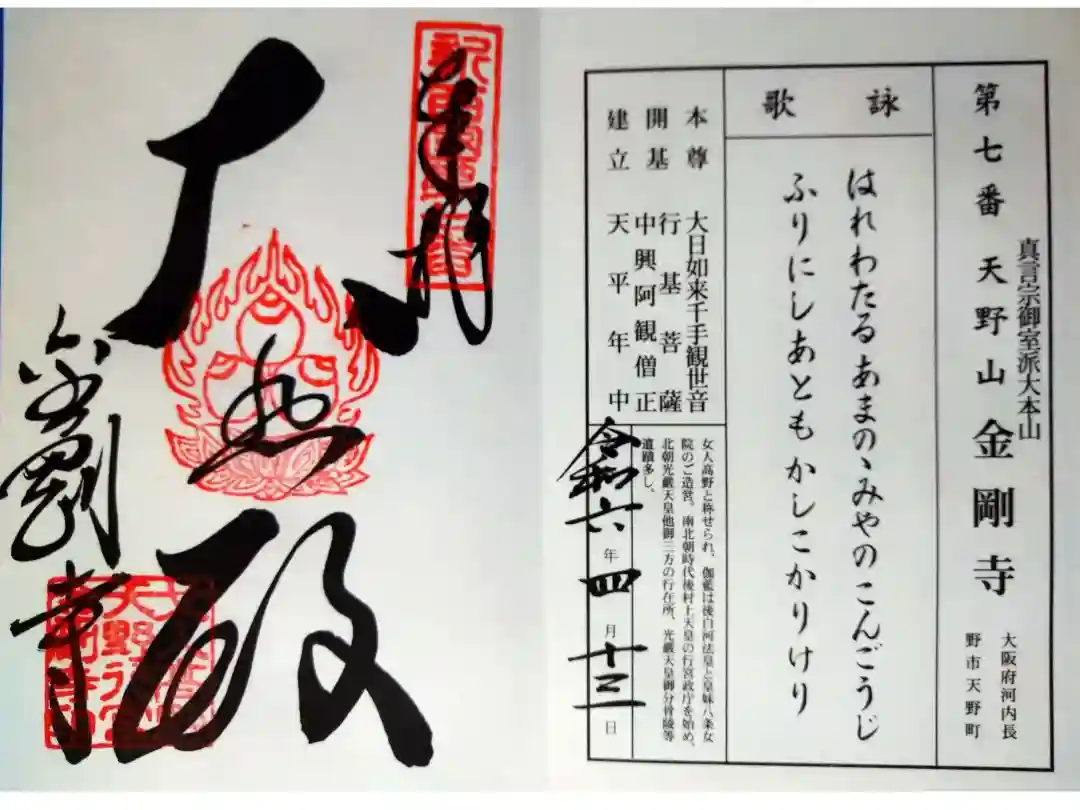 奉拝
大悲殿
金剛寺
第七番 天野山 金剛寺
真言宗御室派大本山
大阪府河内長
野市天野町
詠歌
はれわたるあまのゝみやのこんごうじ
ふりにしあともかしこかりけり
本尊 大日如来千手観世音
開基 行基菩薩
中興阿観僧正
建立 天平年中
女人高野と称せられ、伽藍は後白河法皇と皇妹八条女
院のご造営。南北朝時代後村上天皇の行宮政庁を始め、
北朝光厳天皇他御三方の行在所、光厳天皇御分骨陵等
遺蹟多し。
令和六年四月十三日